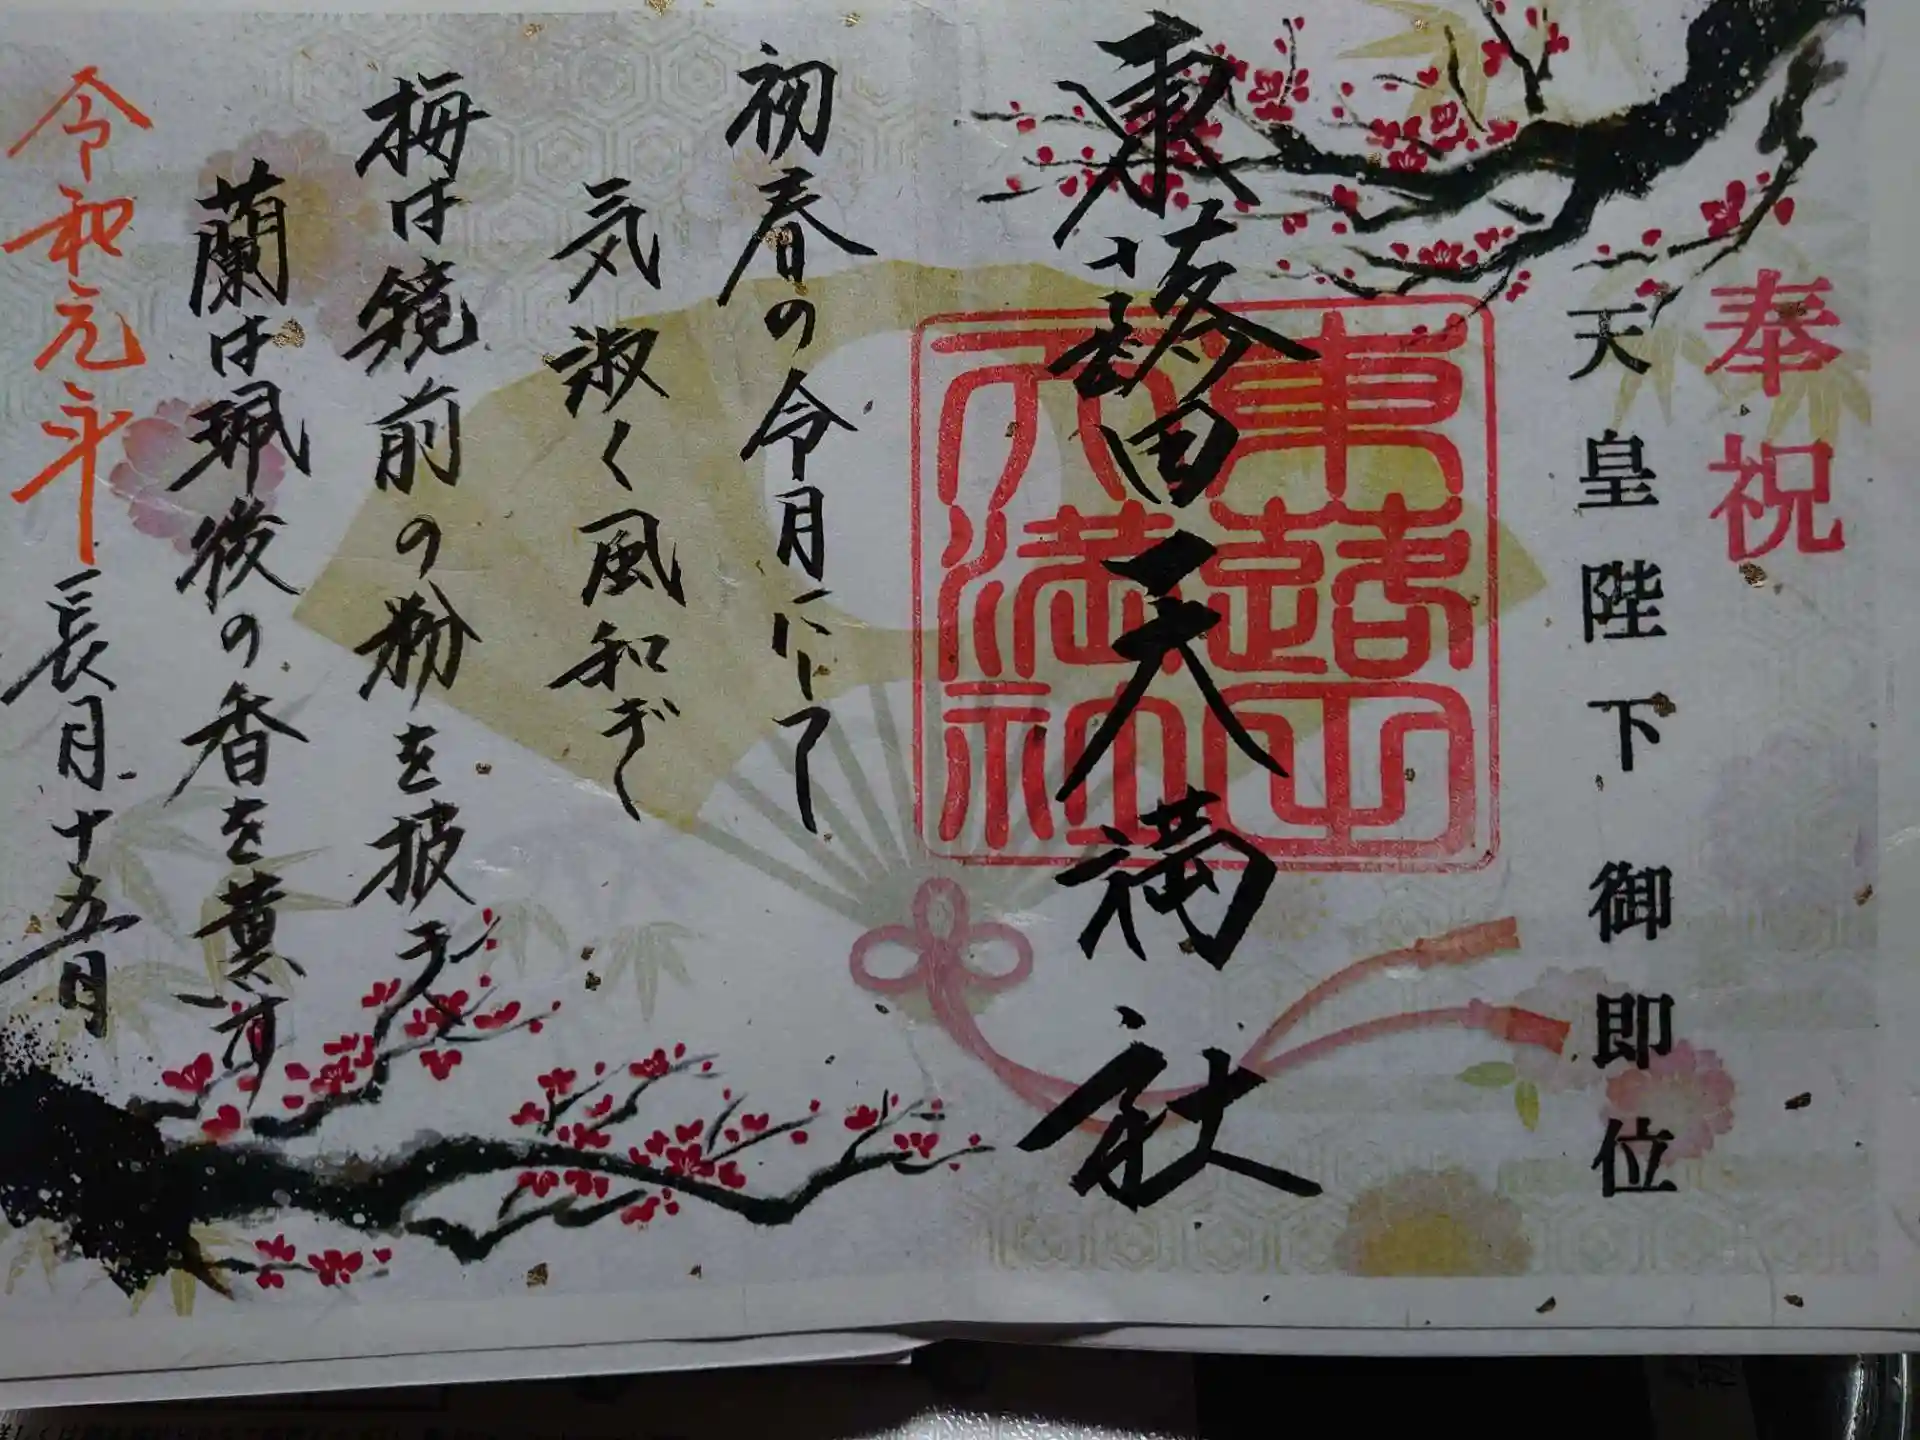 奉祝
天皇陛下御即位
東蕗田天満社
東蕗田
天満社
初春の令月にして
気淑く風和ぎ
梅は鏡前の粉を披き
蘭は珮後の香を薫す
令和元年長月十五日